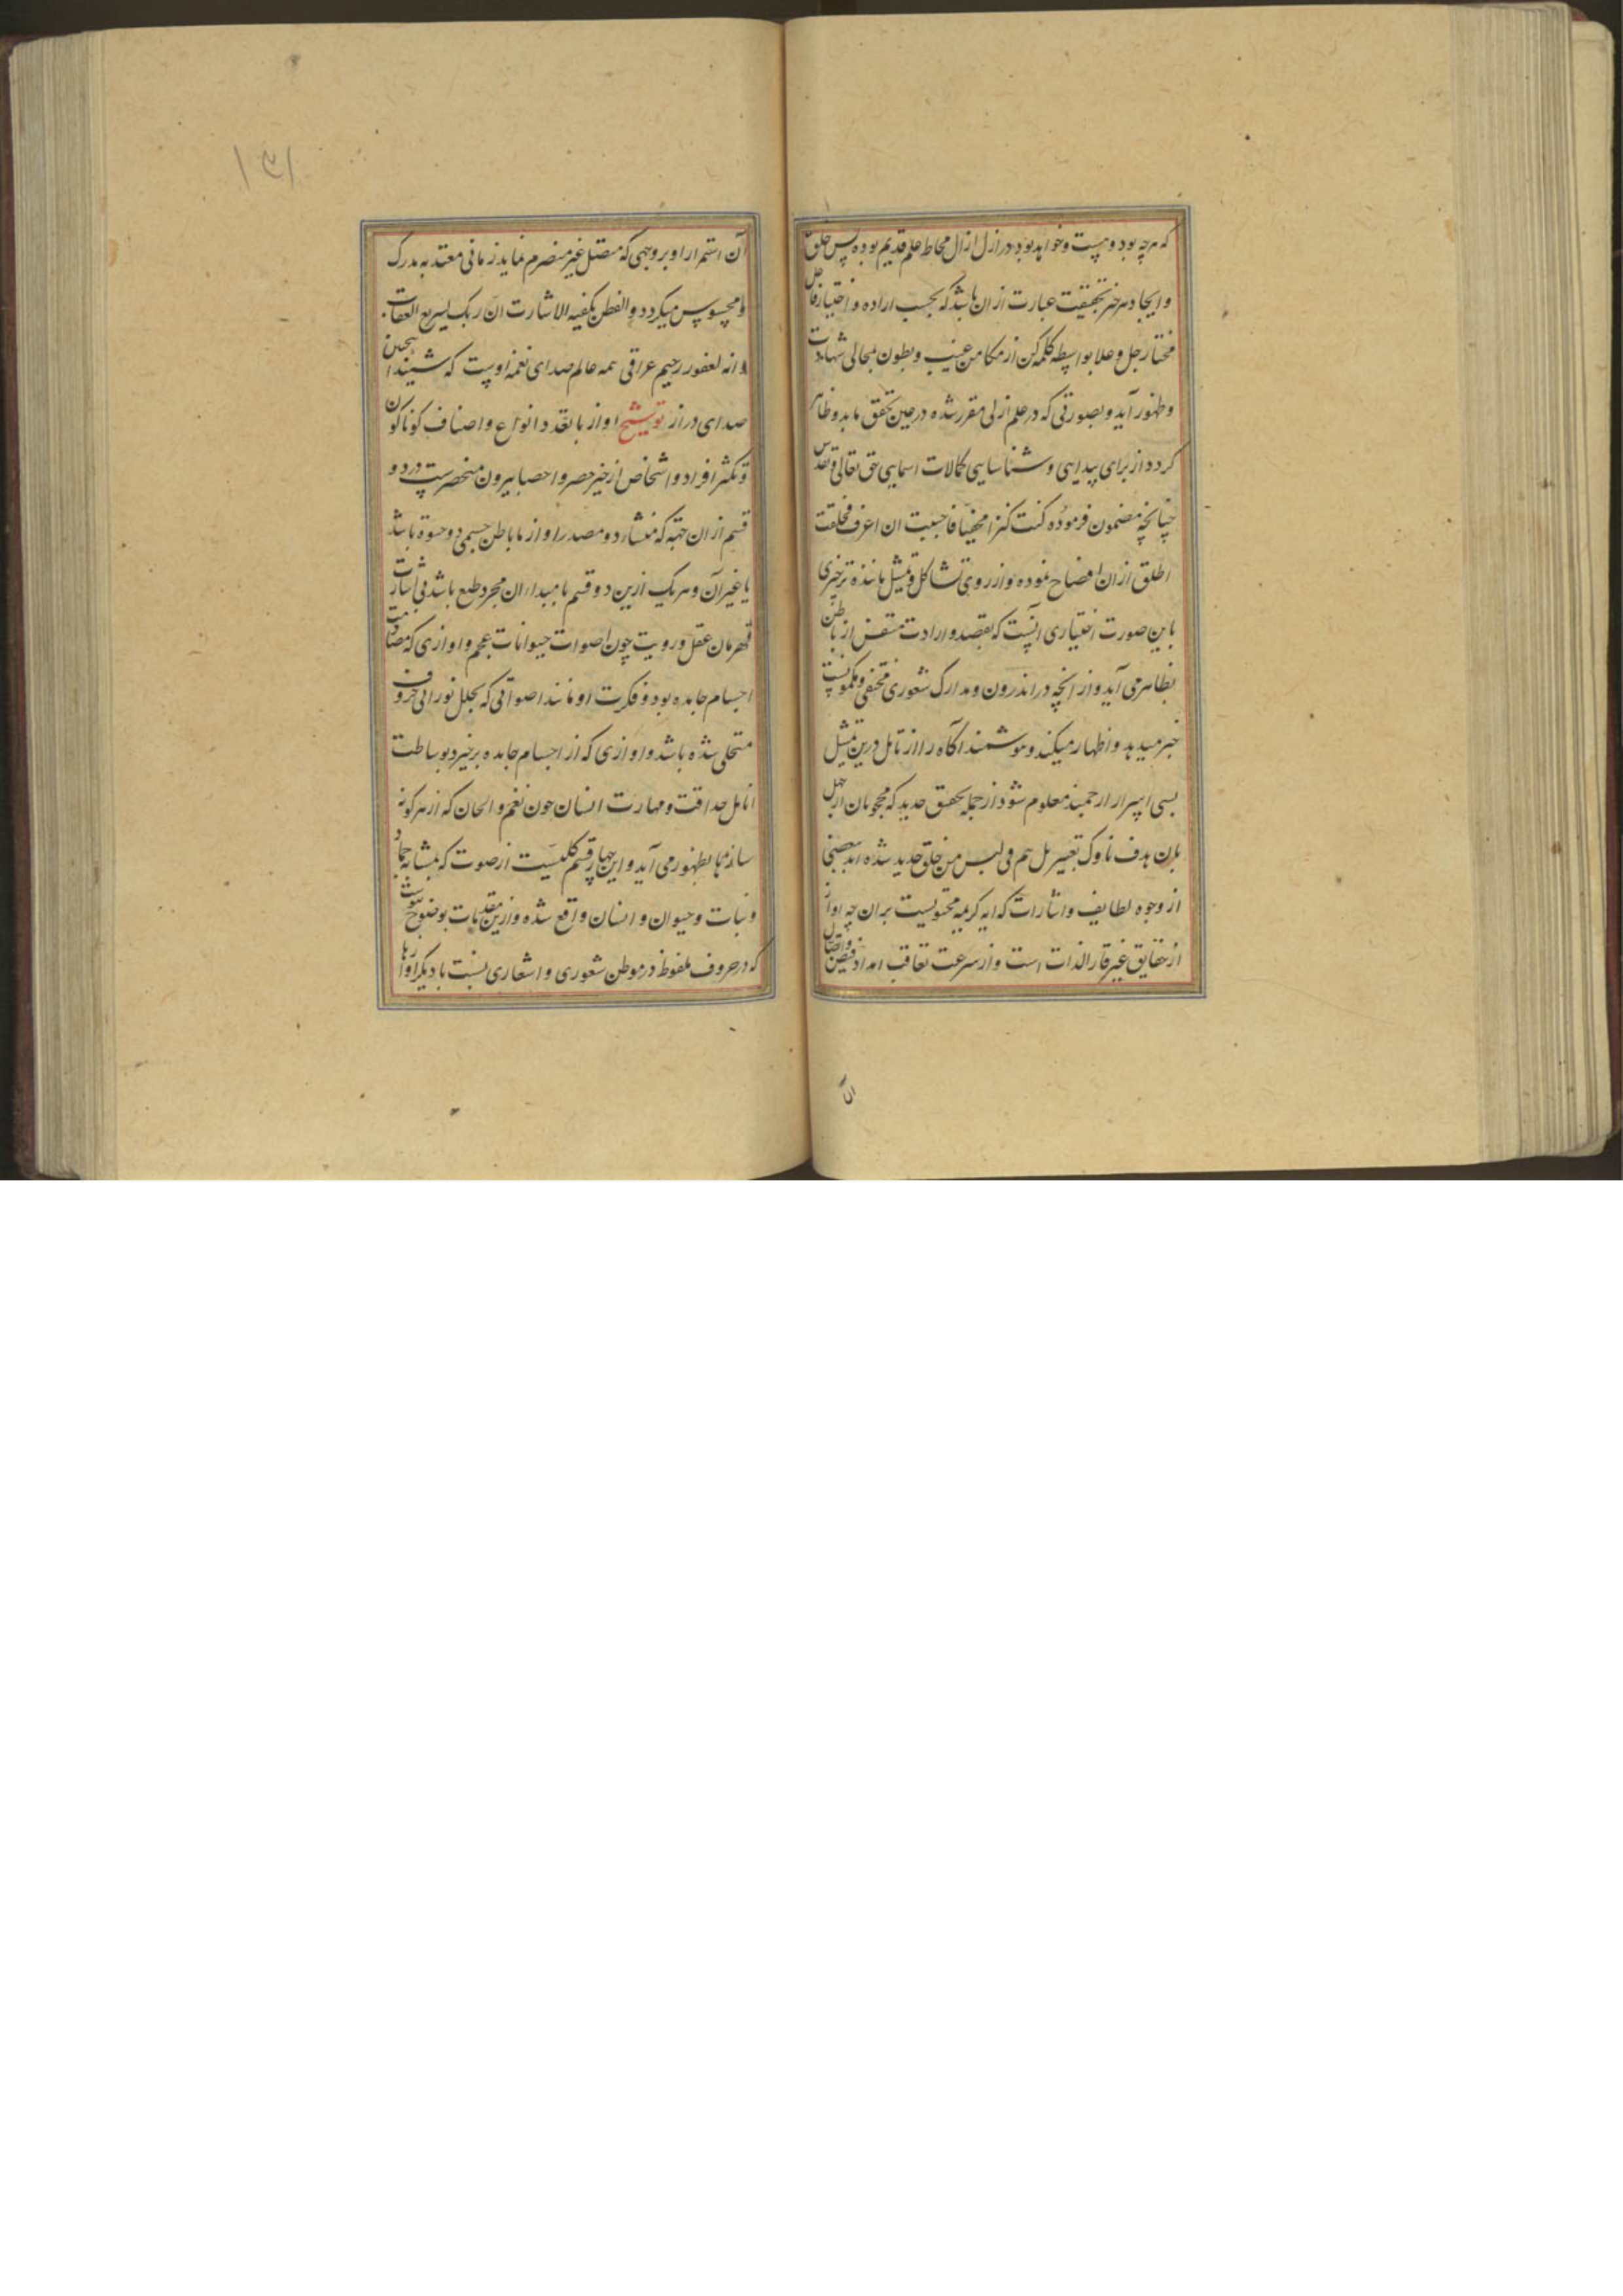 که هرچه بود و هست و خواهد بود در ازل ازال محاط علم قدیم بوده پس خلق
و ایجاد هر چیز بحقیقت عبارت از ان باشد که بحسب اراده و اختیار فاعل
مختار جل و علا بواسطه کلمه کن از مکامن غیب و بطون بمجالی شهادت
و ظهور آید و بصورتی که در علم ازلی مقرر شده در عین تحقق یابد و ظاهر
کردد از برای پیدایی و شناسایی کمالات اسمایی حق تعالی و تقدس
چنانچه مضمون فرموده کنت کنزا مخفیا فاحببت ان اعرف فخلقت
الخلق از ان افصاح نموده و از روی تشاکل و تمثیل ماننده ترین چیزی
باین صورت اختیاری انست که بقصد و ارادت متنفس از باطن
بظاهر می آید و از انچه در اندرون و مدارک شعوری مختفی و مکمونست
خبر میدهد و اظهار میکند و هوشمند آکاه را از تامل درین تمثیل
بسی اسرار ارجمند معلوم شود از جمله تحقیق جدید که محجوبان از جهل
بدان هدف ناوک تعییر بل هم فی لبس من خلق جدید شده اند ببعضی
از وجوه لطایف و اشارات که ایه کریمه محتویست بران چه اواز
از حقایق غیر قار الذات است و از سرعت تعاقب امداد فیض و اتصال
آن استمرار او بر وجهی که متصل غیر منصرم نماید زمانی معتد به مدرک
و محسوس میکردد و الفطن یکفیه الاشارت ان ربک لسریع العقاب
و انه لغفور رحیم عراقی همه عالم صدای نغمه اوست که شنید اینچنین
صدای دراز توشیح اواز با تعدد انواع و اصناف کوناکون
و تکثر افراد و اشخاص از حیز حصر و احصا بیرون منحصرست در دو
قسم از ان جهة که منشاء و مصدر اواز ما باطن جسمی ذو حیوة باشد
یا غیر آن و هر یک ازین دو قسم یا مبداء ان مجرد طبع باشد بی اشارت
قهرمان عقل و رویت چون اصوات حیوانات عجم و اوازی که
اجسام جامده بود و فکرت او مانند اصواتی که بحلل نورانی حروف
متحلی شده باشد و اوازی که از اجسام جامده برخیزد بوساطت
انامل حذاقت و مهارت انسان چون نغم و الحان که از هر کونه
سازها بظهور می آید و این چهار قسم کلیست از صوت که بمثابه جماد
و نبات و حیوان و انسان واقع شده و ازین مقدمات بوضوح پیوست
که در حروف ملفوظ در موطن شعوری و اشعاری نسبت با دیکر اوازها